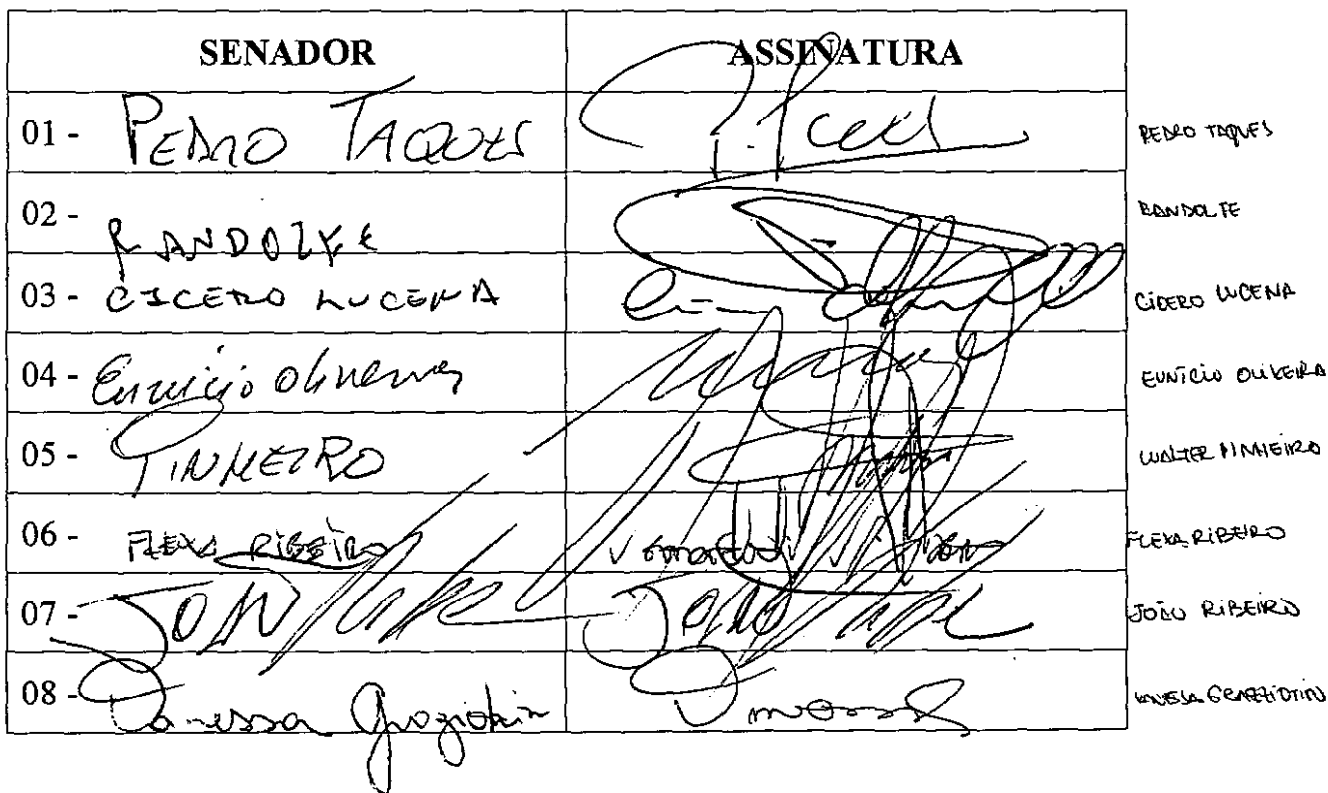 SENADOR ASSINATURA
01 - PEDRO TAQUES PEDRO TAQUES
02 - RANDOLFE RANDOLFE
03 - CICERO LUCENA CÍCERO LUCENA
04 - Eunício Oliveira EUNÍCIO OLIVEIRA
05 - PINHEIRO WALTER PINHEIRO
06 - FLEXA RIBEIRO FLEXA RIBEIRO
07 - JOÃO JOÃO JOÃO RIBEIRO
08 - Vanessa Graziotin VANESSA GRAZZIOTIN